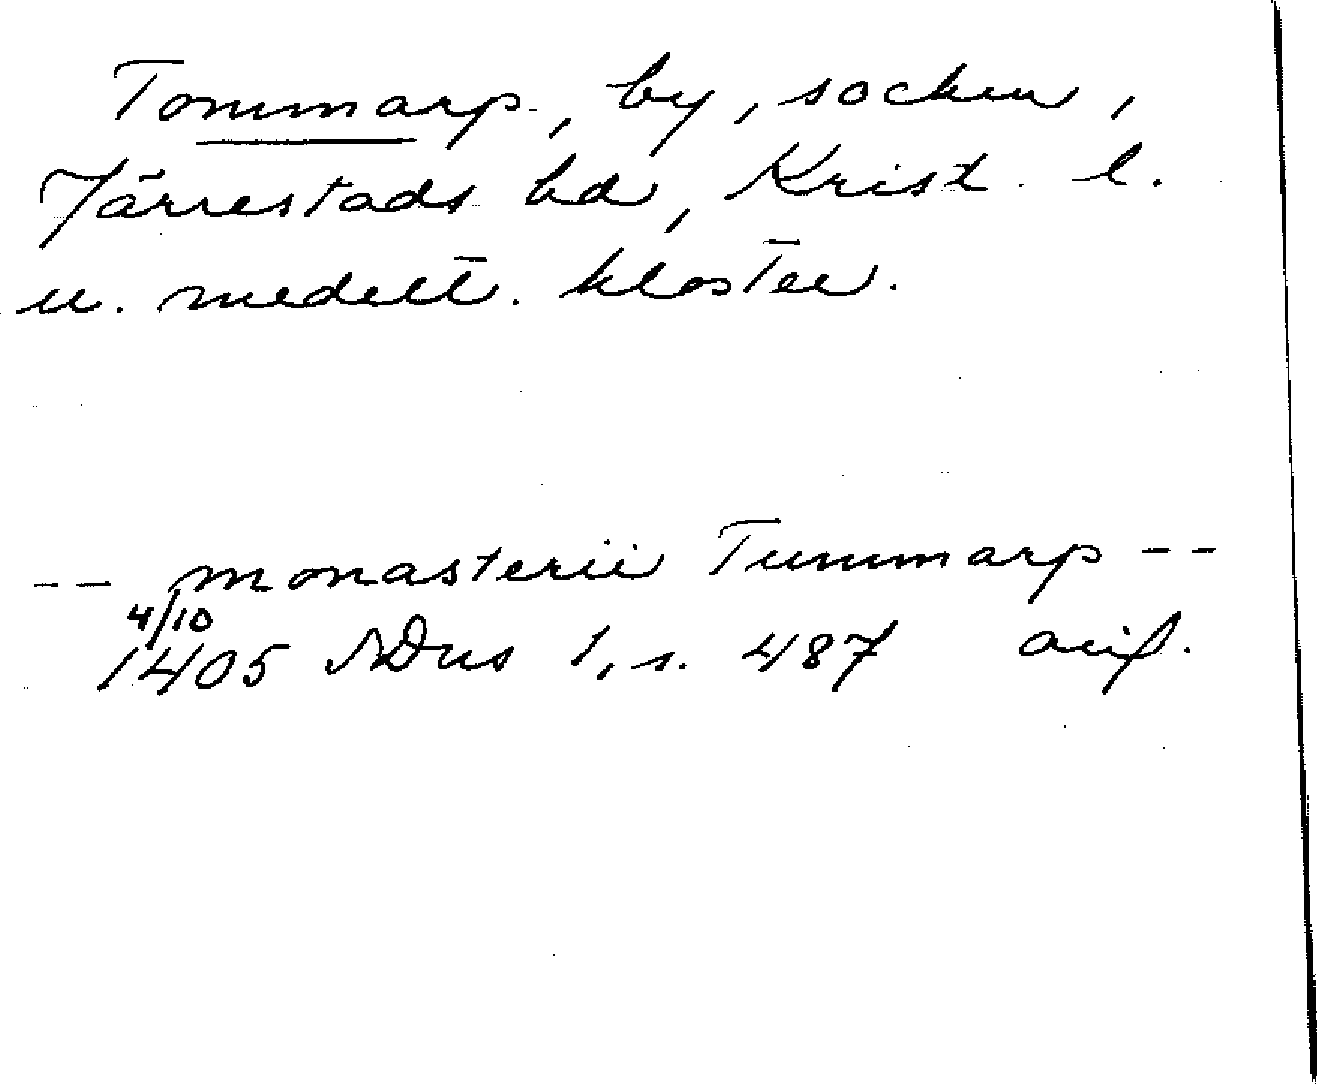 Tommarp, by, socken,
Järrestads hd, Krist. l.
u. medelt. kloster.
-- monasterii Tummarp --
4/10
1405 SDns 1, s. 487 avs.